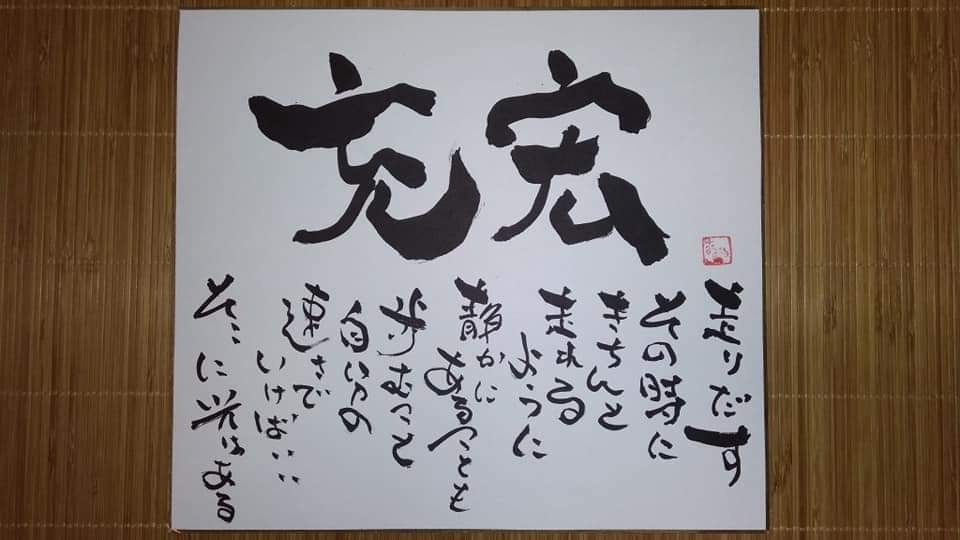 宏充
走りだす
その時に
きちんと
走れる
ように
静かに
あることも
歩むこと
自分の
速さで
いけばいい
そこに光はある